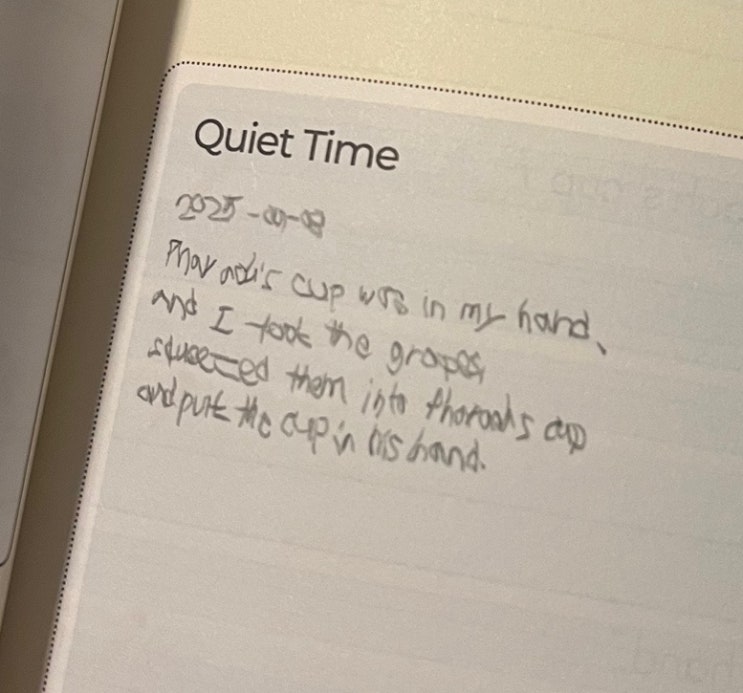 Quiet Time
2025-09-08
Pharaoh's cup was in my hand,
and I took the grapes,
squeezed them into pharoahs cup
and put the cup in his hand.